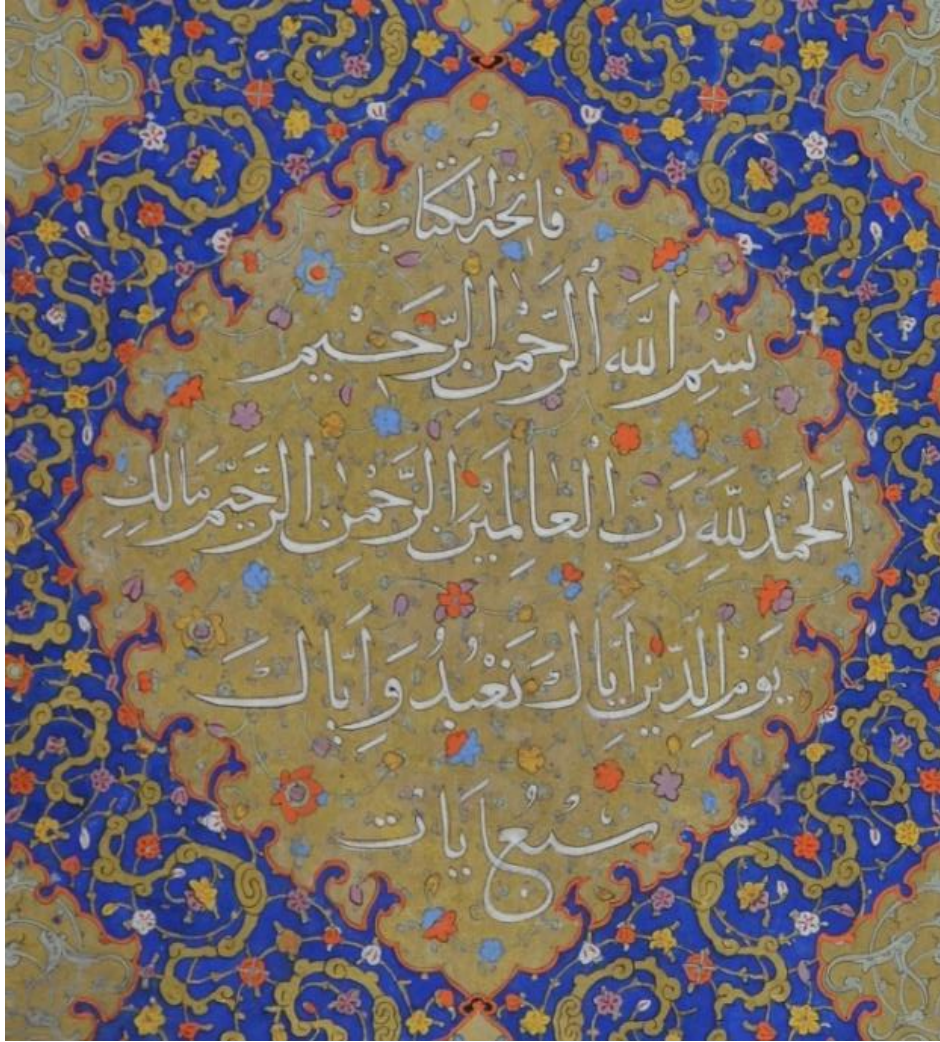 فاتحة الكتاب
بِسْمِ اللَّهِ الرَّحْمٰنِ الرَّحِيمِ
اَلْحَمْدُ لِلَّهِ رَبِّ الْعَالَمِينَ الرَّحْمٰنِ الرَّحِيمِ مَالِكِ
يَوْمِ الدِّينِ اِيَّاكَ نَعْبُدُ وَاِيَّاكَ
سبع ايات